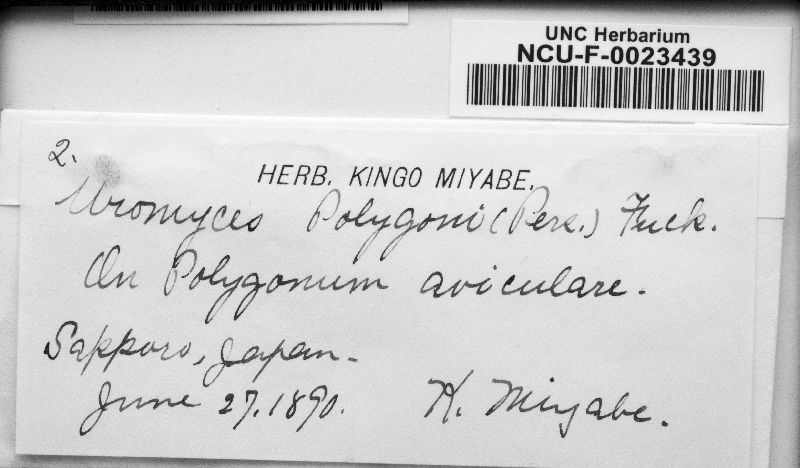 UNC Herbarium
NCU-F-0023439
2.
HERB. KINGO MIYABE.
Uromyces Polygoni (Pers.) Fuck.
On Polygonum aviculare.
Sapporo, Japan.
June 27. 1890. K. Miyabe.